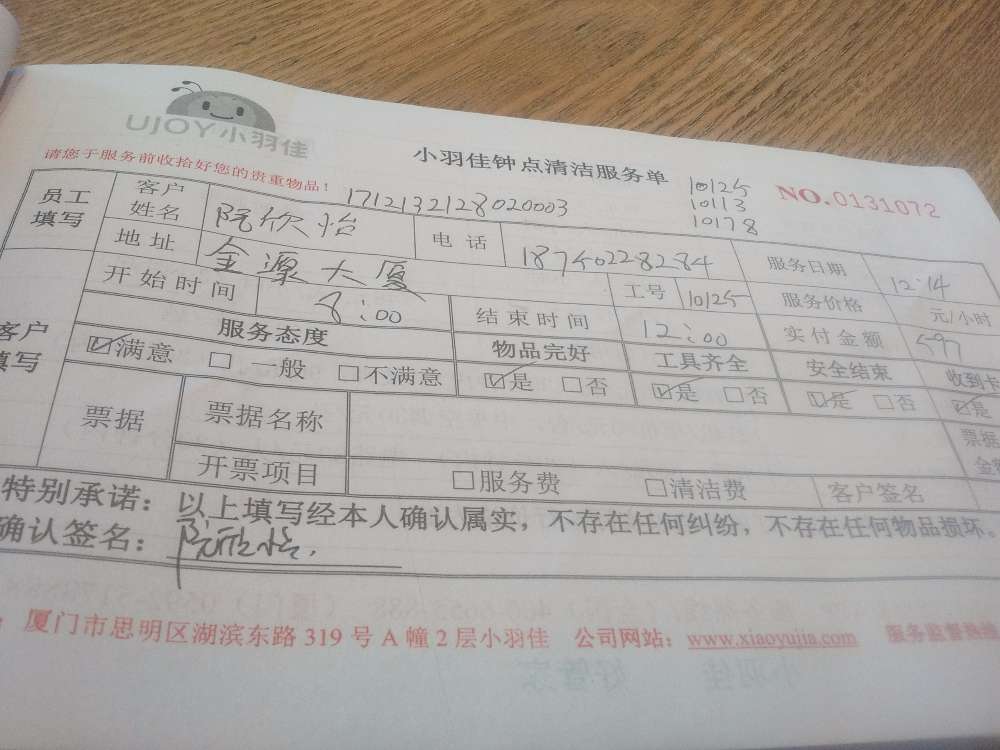 UJOY小羽佳
小羽佳钟点清洁服务单
请您于服务前收拾好您的贵重物品！
NO.0131072
10125
10113
10178
1712132128020003
员工填写 客户姓名 阮欣怡 电话 18740228284 服务日期 12:14
地址 金源大厦 工号 10125 服务价格 元/小时
客户填写 开始时间 8:00 结束时间 12:00 实付金额 597
服务态度 物品完好 工具齐全 安全结束 收到卡
☑满意 □一般 □不满意 ☑是 □否 ☑是 □否 ☑是 □否 ☑是
票据 票据名称 票据
开票项目 □服务费 □清洁费 客户签名
特别承诺：以上填写经本人确认属实，不存在任何纠纷，不存在任何物品损坏。
确认签名：阮欣怡.
厦门市思明区湖滨东路 319 号 A 幢 2 层小羽佳 公司网站：www.xiaoyujia.com 服务监督热线